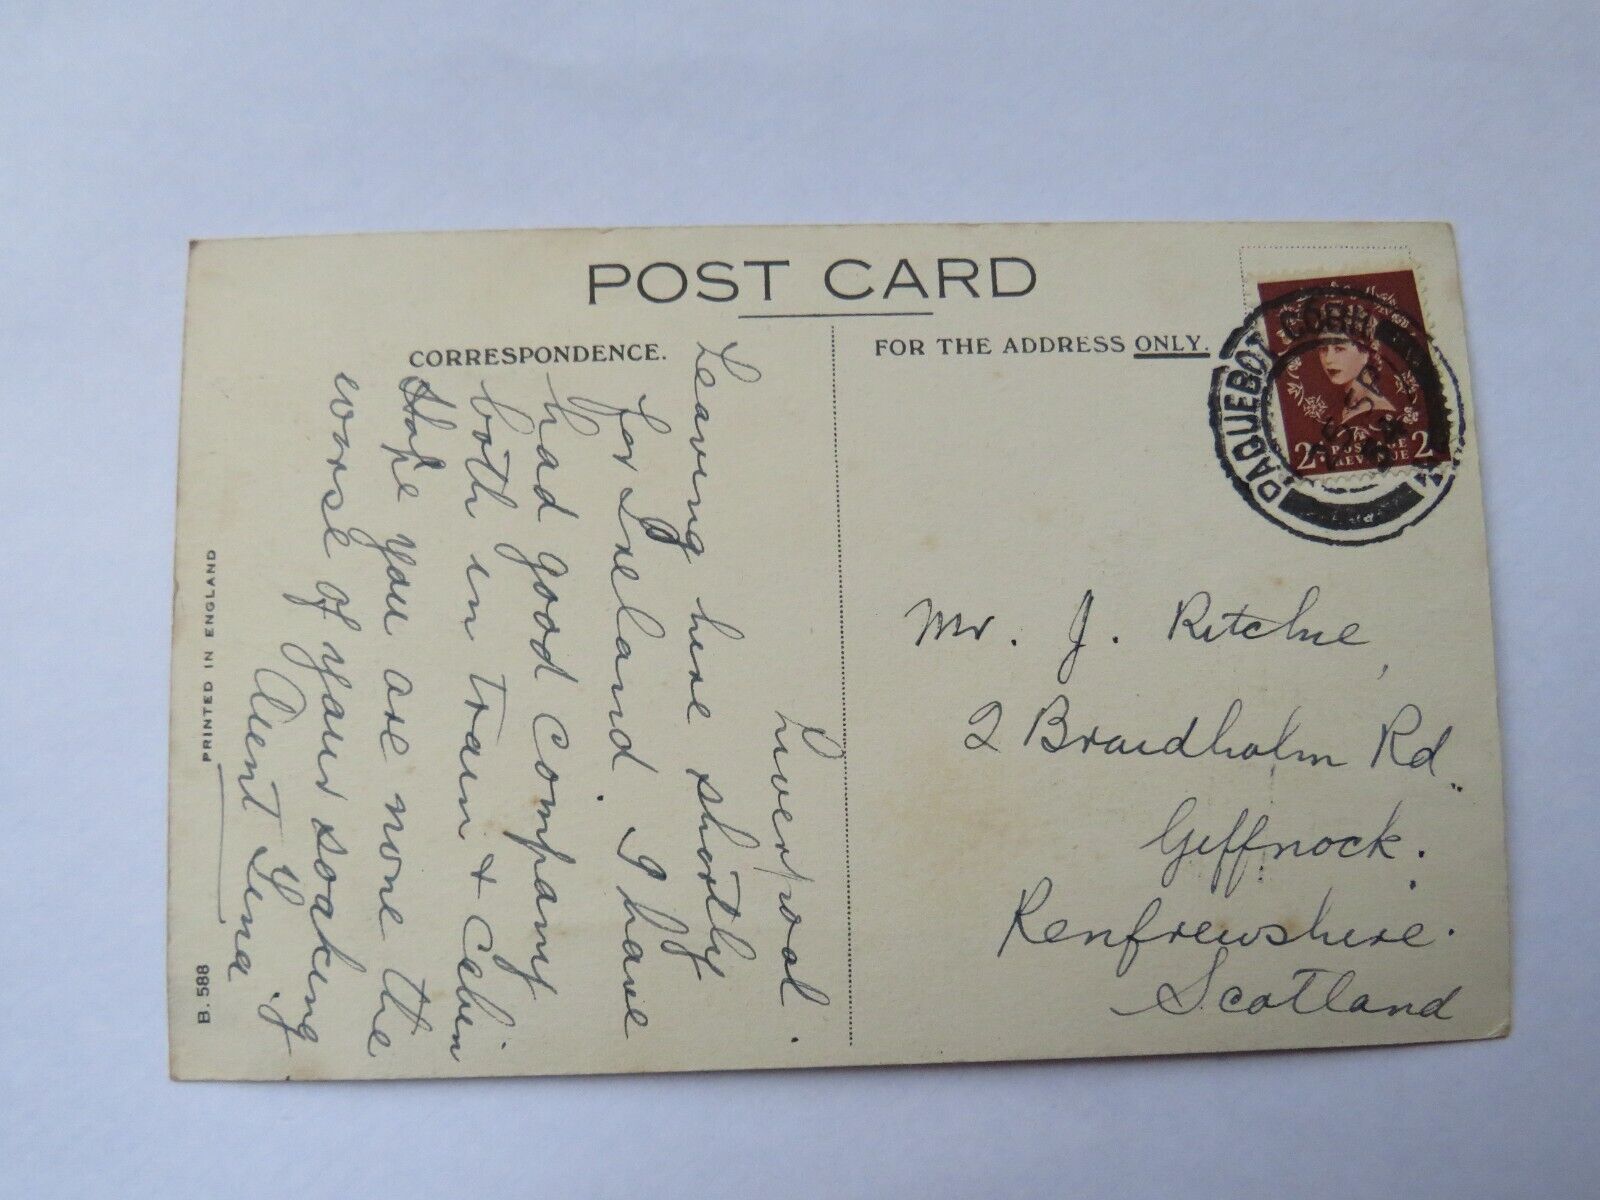 POST CARD
CORRESPONDENCE.
FOR THE ADDRESS ONLY.
PAQUEBOT COBH
2D POSTAGE 2D
REVENUE
Liverpool.
Leaving here shortly
for Ireland. I have
had good company
both in train & Cabin.
Hope you are none the
worse of your soaking
Aunt Lena.
Mr. J. Ritchie,
2 Braidholm Rd.
Giffnock.
Renfrewshire.
Scotland
PRINTED IN ENGLAND
B. 588